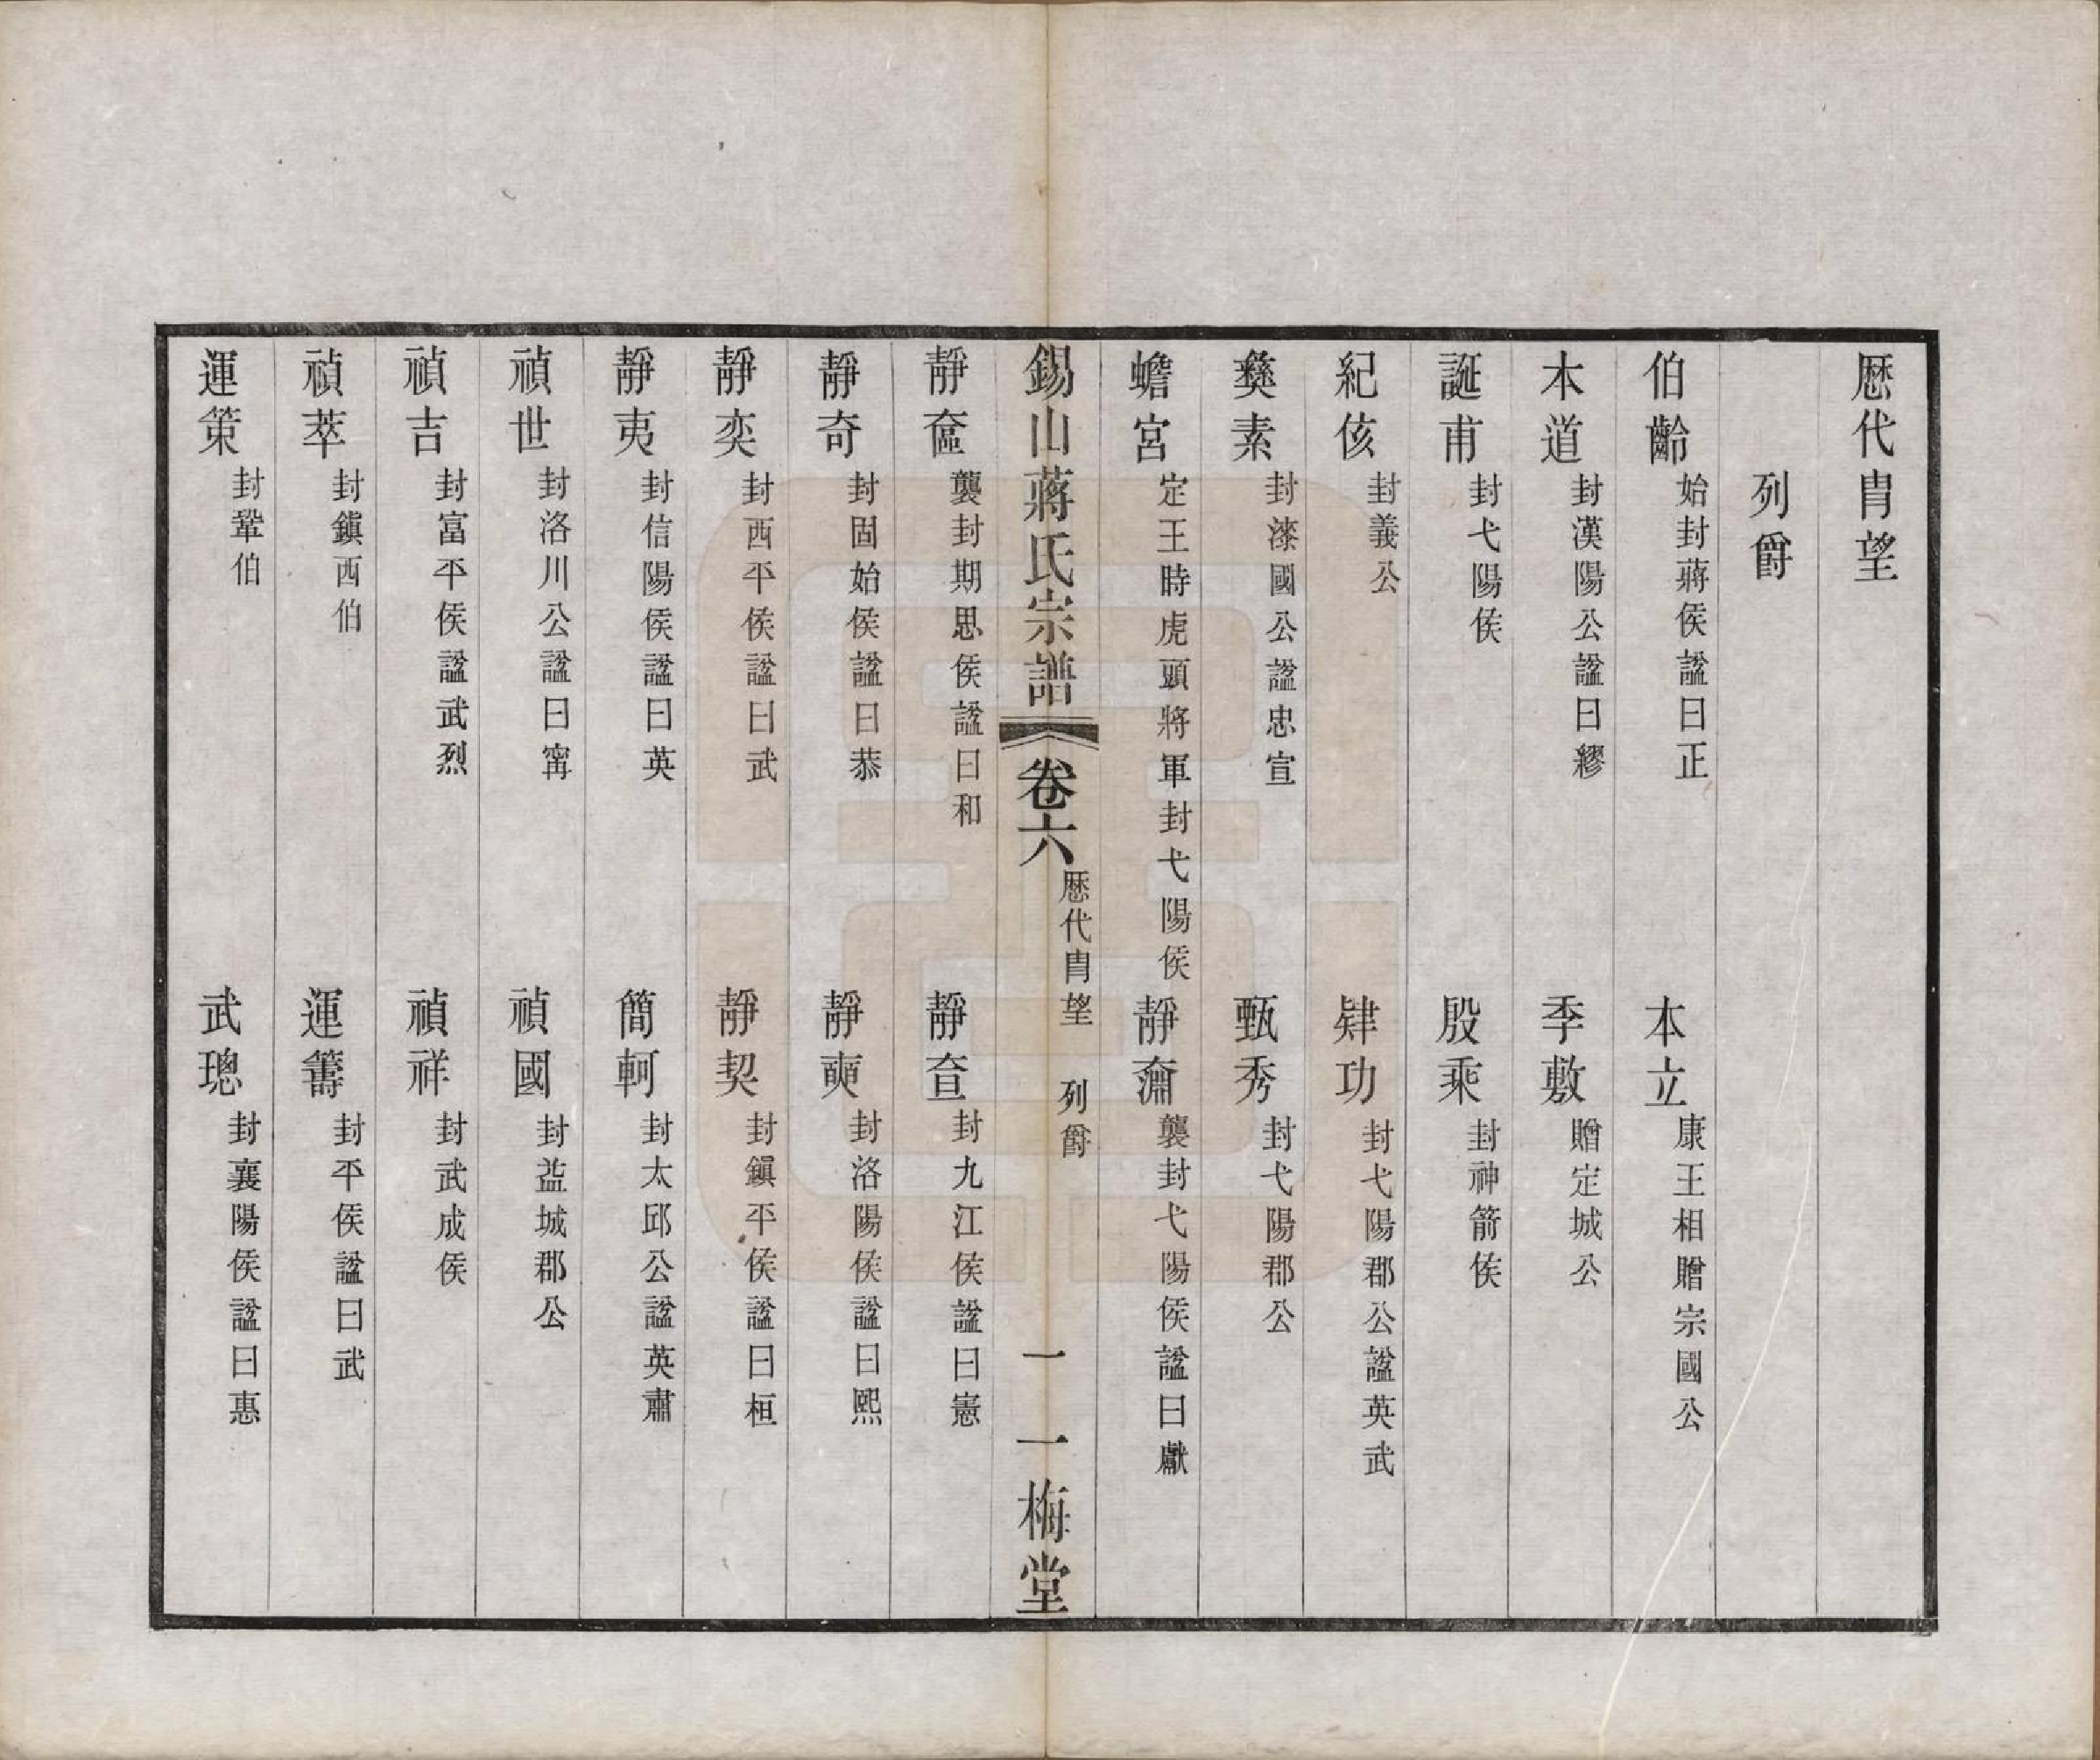 歷代胄望
列爵
伯齡 始封蔣侯諡曰正 本立 康王相贈宗國公
木道 封漢陽公諡曰繆 季敷 贈定城公
誕甫 封弋陽侯 殷乘 封神箭侯
紀侅 封義公 肂功 封弋陽郡公諡英武
彜素 封漆國公諡忠宣 甄秀 封弋陽郡公
蟾宮 定王時虎頭將軍封弋陽侯 靜奫 襲封弋陽侯諡曰獻
錫山蔣氏宗譜 卷六 歷代胄望 列爵 一 一梅堂
靜奩 襲封期思侯諡曰和 靜奆 封九江侯諡曰憲
靜奇 封固始侯諡曰恭 靜奭 封洛陽侯諡曰熙
靜奕 封西平侯諡曰武 靜契 封鎭平侯諡曰桓
靜夷 封信陽侯諡曰英 簡軻 封太邱公諡英肅
禎世 封洛川公諡曰甯 禎國 封益城郡公
禎吉 封富平侯諡武烈 禎祥 封武成侯
禎萃 封鎭西伯 運籌 封平侯諡曰武
運策 封鞏伯 武璁 封襄陽侯諡曰惠